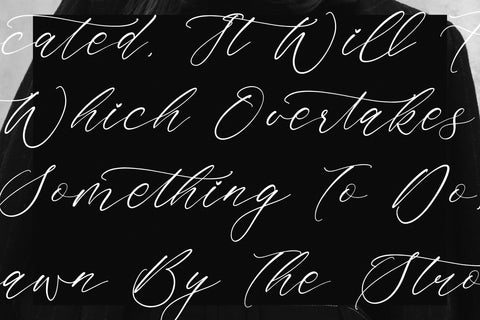 cated. It Will
Which Overtakes
Something To Do,
awn By The Stro